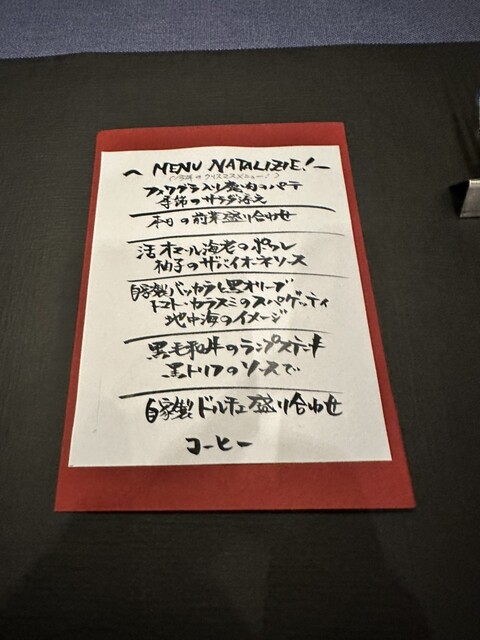 MENU NATALIZIE!
(今年のクリスマスメニュー!)
フォワグラ入り鶏肉のパテ
季節のサラダ添え
本日の前菜盛り合わせ
活オマール海老のポワレ
柚子のザバイオーネソース
自家製バッカラと黒オリーブ
トマト・カラスミのスパゲッティ
地中海のイメージ
黒毛和牛のランプステーキ
黒トリフのソースで
自家製ドルチェ盛り合わせ
コーヒー